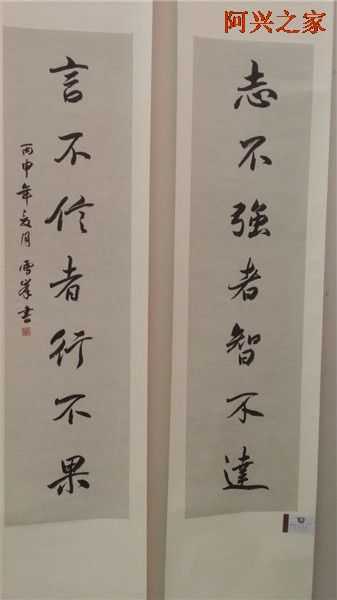 阿兴之家
志不強者智不達
言不信者行不果
丙申年夏月雪峯书